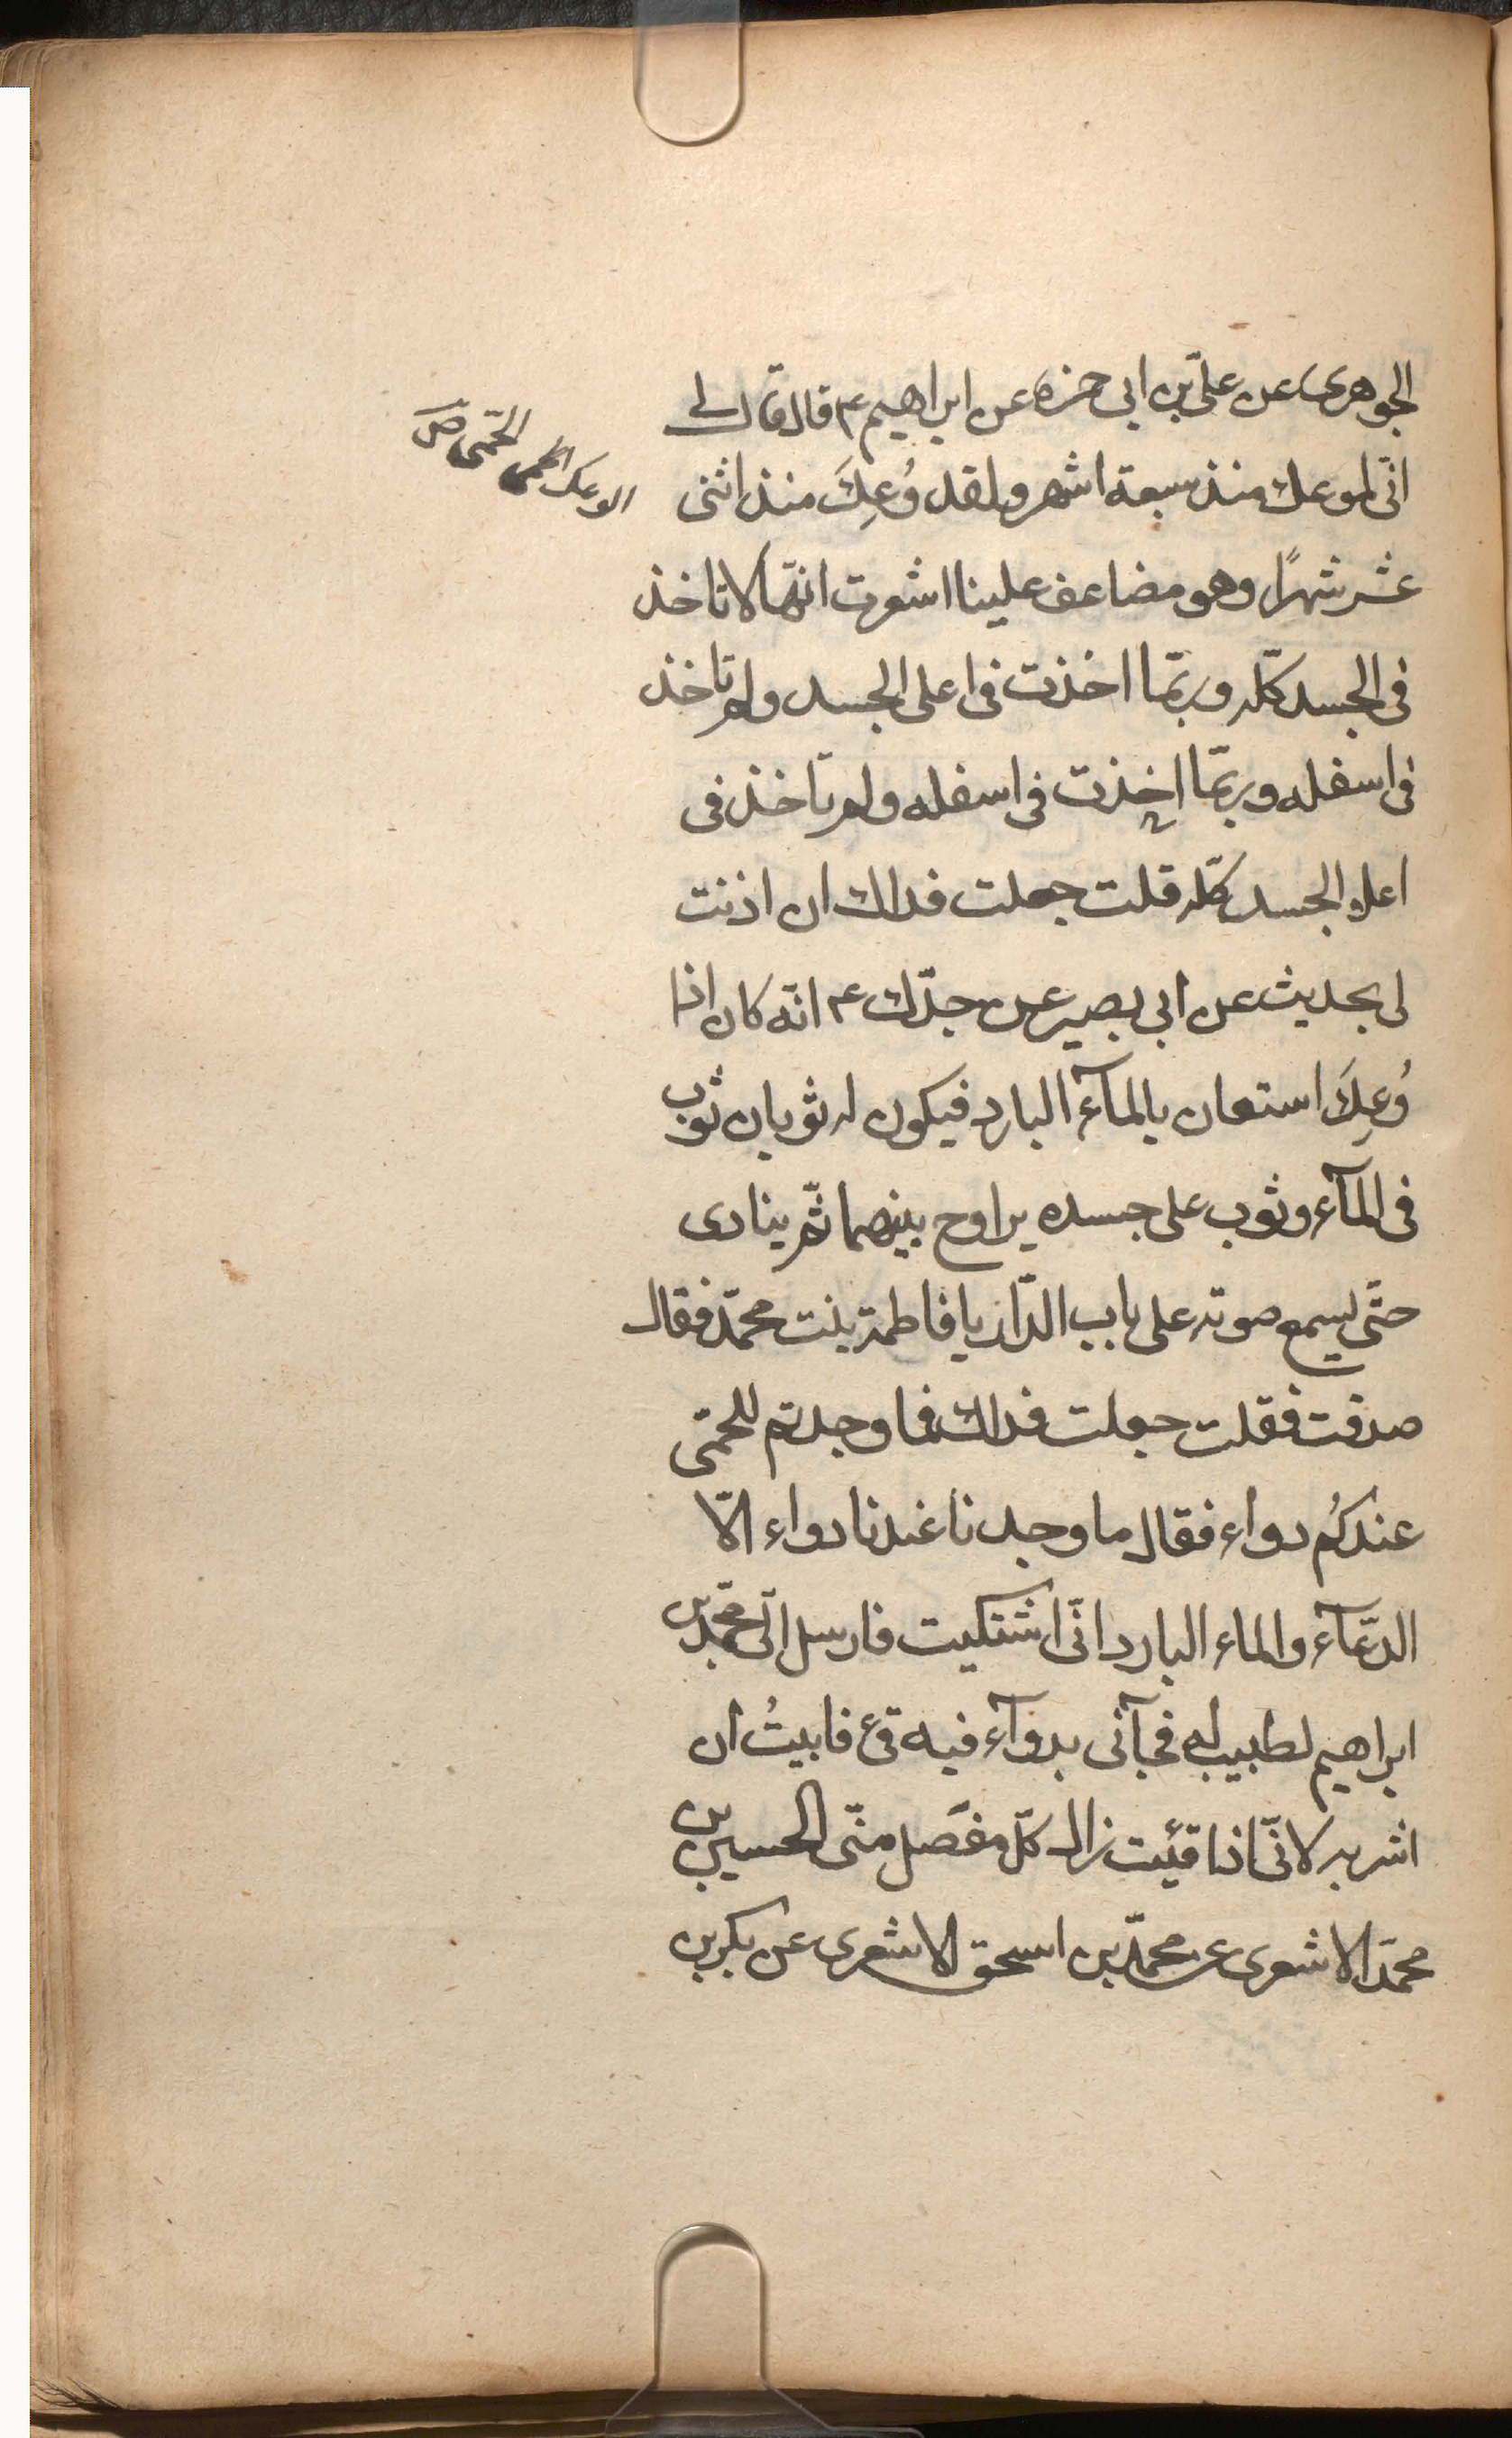 الجوهرى عن علىّ بن ابى حمزه عن ابراهيم ع قال قال لى
انّى لموعك منذ سبعة اشهر ولقد وُعِكَ منذ اثنى
عشر شهرًا وهو مضاعف علينا اشعرت انّها لا تاخذ
فى الجسد كلّه وربّما اخذت فى اعلى الجسد ولم تاخذ
فى اسفله وربّما اخذت فى اسفله ولم تاخذ فى
اعلى الجسد كلّه قلت جعلت فداك ان اذنت
لى بحديث عن ابى بصير عن جدّك ع انّه كان اذا
وُعِكَ استعان بالمآء البارد فيكون له ثوبان ثوب
فى المآء وثوب على جسده يراوح بينهما ثمّ ينادى
حتّى يسمع صوته على باب الدّار يا فاطمة بنت محمّد فقال
صدقت فقلت جعلت فداك فما وجدتم للحمّى
عندكُم دواء فقال ما وجدنا عندنا دواء الّا
الدّعآء والماء البارد انّى اشتكيت فارسل الىّ محمّد بن
ابراهيم بطبيب له فجآئنى بدوآء فيه قئ فابيتُ ان
اشربه لانّى اذا قئيت زال كلّ مفصل منّى الحسين بن
محمّد الاشعرى عن محمّد بن اسحق الاشعرى عن بكر بن
الوعك الحمى